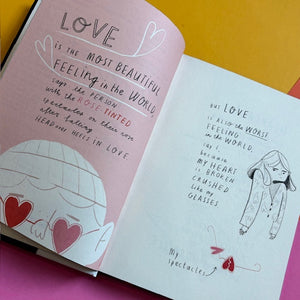 LOVE
IS THE MOST BEAUTIFUL
FEELING in the WORLD
says the PERSON
with the ROSE TINTED
spectacles on their nose
after falling
HEAD over HEELS IN LOVE
but LOVE
IS ALSO the WORST
FEELING
in the WORLD.
say I,
because
MY HEART
is BROKEN
CRUSHED
like my
GLASSES
My
spectacles